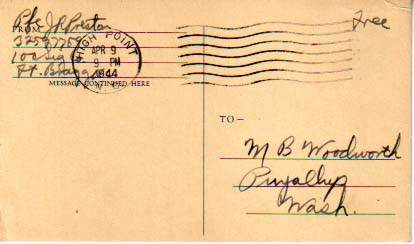 Pfc J R Preston
FROM
Ft. Bragg
MESSAGE CONTINUED HERE
HIGH POINT
APR 9
9 PM
1944
N.C.
Free
TO —
M B Woodworth
Puyallup
Wash.